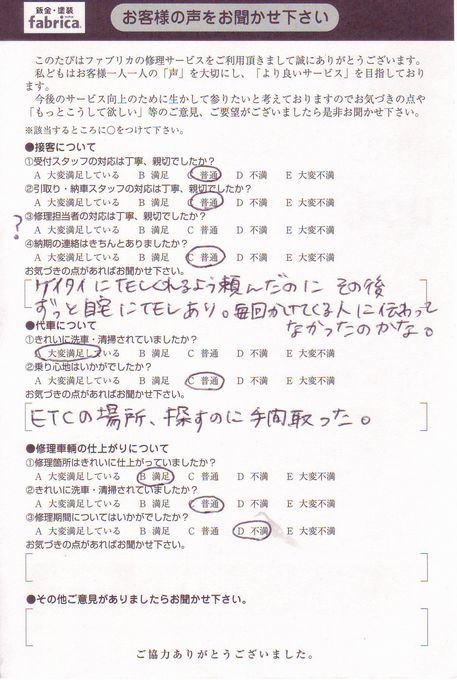 鈑金・塗装
fabrica.
お客様の声をお聞かせ下さい
このたびはファブリカの修理サービスをご利用頂きまして誠にありがとうございます。
私どもはお客様一人一人の「声」を大切にし、「より良いサービス」を目指しており
ます。
今後のサービス向上のために生かして参りたいと考えておりますのでお気づきの点や
「もっとこうして欲しい」等のご意見、ご要望がございましたら是非お聞かせ下さい。
※該当するところに○をつけて下さい。
●接客について
①受付スタッフの対応は丁寧、親切でしたか？
A 大変満足している B 満足 C 普通 D 不満 E 大変不満
②引取り・納車スタッフの対応は丁寧、親切でしたか？
A 大変満足している B 満足 C 普通 D 不満 E 大変不満
?
③修理担当者の対応は丁寧、親切でしたか？
A 大変満足している B 満足 C 普通 D 不満 E 大変不満
④納期の連絡はきちんとありましたか？
A 大変満足している B 満足 C 普通 D 不満 E 大変不満
お気づきの点があればお聞かせ下さい。
ケイタイにTELくれるよう頼んだのに その後
ずっと自宅にTELあり。毎回かけてくる人に伝わって
なかったのかな。
●代車について
①きれいに洗車・清掃されていましたか？
A 大変満足している B 満足 C 普通 D 不満 E 大変不満
②乗り心地はいかがでしたか？
A 大変満足している B 満足 C 普通 D 不満 E 大変不満
お気づきの点があればお聞かせ下さい。
ETCの場所、探すのに手間取った。
●修理車輌の仕上がりについて
①修理箇所はきれいに仕上がっていましたか？
A 大変満足している B 満足 C 普通 D 不満 E 大変不満
②きれいに洗車・清掃されていましたか？
A 大変満足している B 満足 C 普通 D 不満 E 大変不満
③修理期間についてはいかがでしたか？
A 大変満足している B 満足 C 普通 D 不満 E 大変不満
お気づきの点があればお聞かせ下さい。
●その他ご意見がありましたらお聞かせ下さい。
ご協力ありがとうございました。